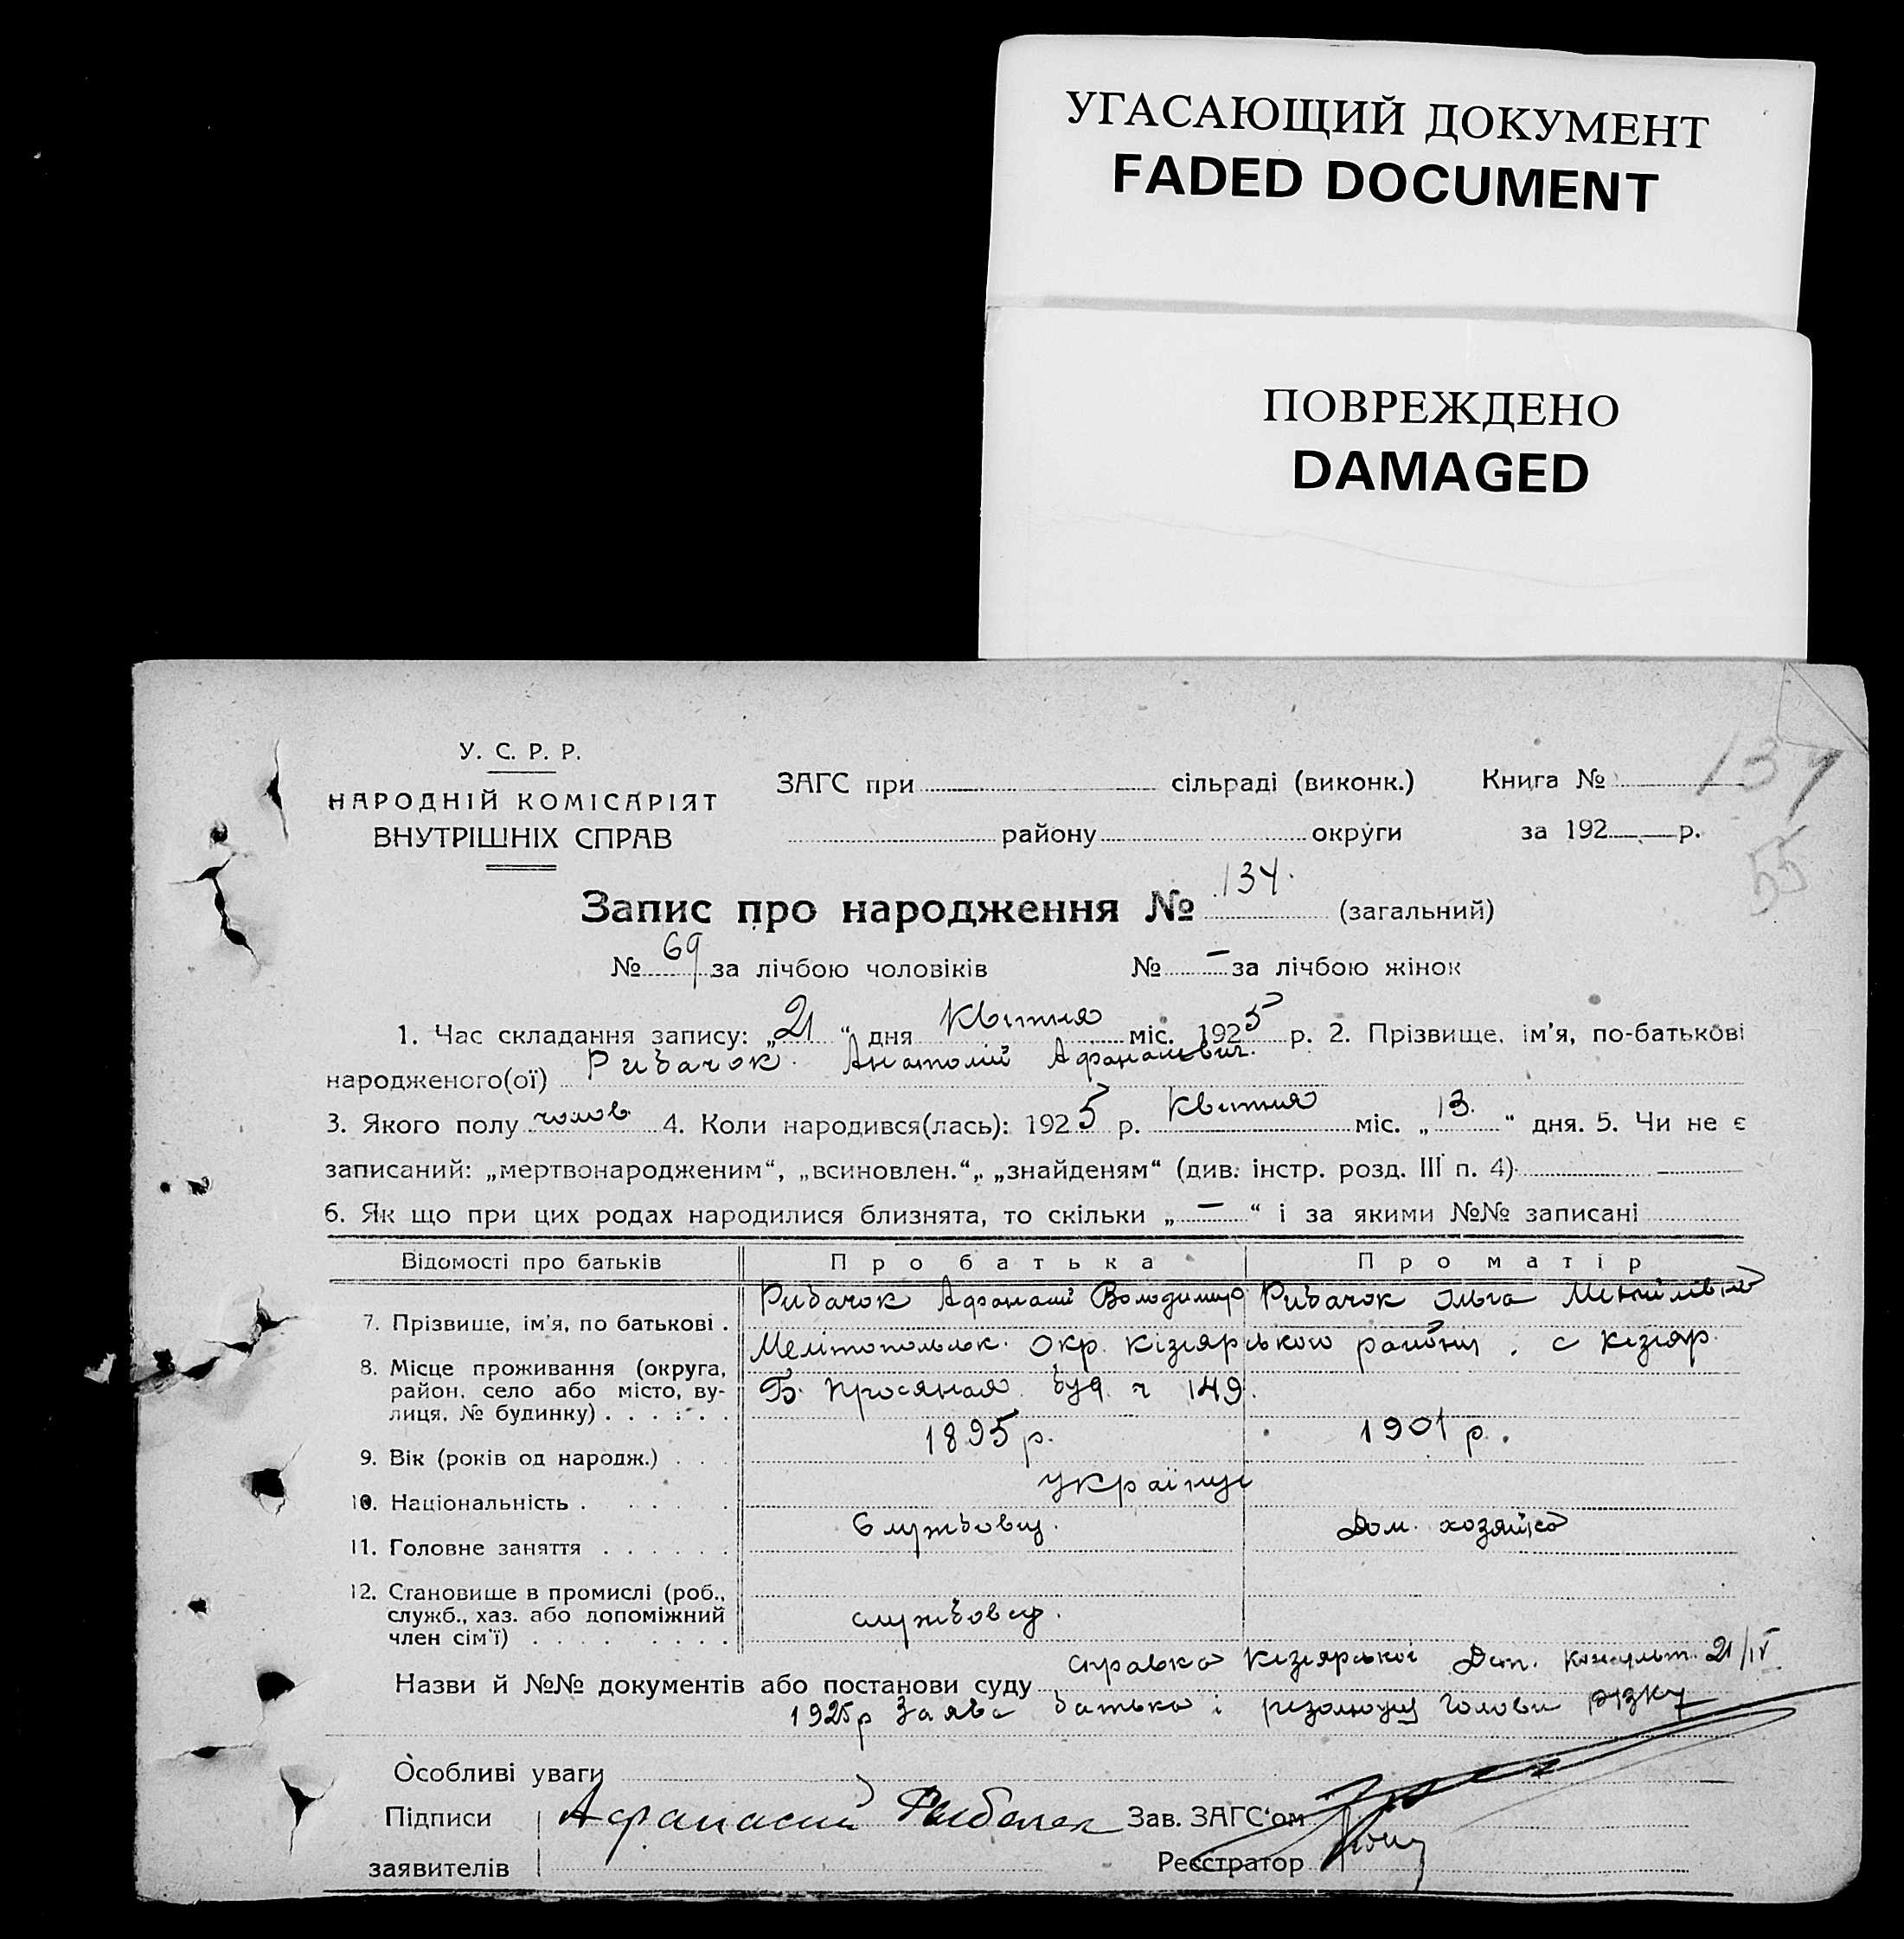 УГАСАЮЩИЙ ДОКУМЕНТ
FADED DOCUMENT
ПОВРЕЖДЕНО
DAMAGED
У. С. Р. Р.
НАРОДНІЙ КОМІСАРІЯТ
ВНУТРІШНІХ СПРАВ
ЗАГС при сільраді (виконк.) Книга №
району округи за 192 р.
134
55
Запис про народження № 134. (загальний)
№ 69 за лічбою чоловіків № — за лічбою жінок
1. Час складання запису: „21“ дня Квітня міс. 1925 р. 2. Прізвище, ім'я, по-батькові
народженого(ої) Рибачок Анатолій Афанасьевич.
3. Якого полу чолов. 4. Коли народився(лась): 1925 р. Квітня міс. „13.“ дня. 5. Чи не є
записаний: „мертвонародженим“, „всиновлен.“, „знайденям“ (див. інстр. розд. III п. 4)
6. Як що при цих родах народилися близнята, то скільки „—“ і за якими №№ записані
Відомості про батьків Про батька Про матір
7. Прізвище, ім'я, по батькові. Рибачок Афанасий Володимир Рибачок Ольга Михайлівна
8. Місце проживання (округа, район, село або місто, вулиця, № будинку) Мелітопольск. Окр. Кізіярського району, с Кізіяр.
Б. Просяная буд. ч 149.
9. Вік (років од народж.) 1895 р. 1901 р.
10. Національність Українці
11. Головне заняття Службовец. Дом. хозяйка
12. Становище в промислі (роб., служб., хаз. або допоміжний член сім'ї) службовец.
Назви й №№ документів або постанови суду справка Кізіярської Консульт. 21/IV
1925р Заява батька і резолюція Голови
Особливі уваги
Підписи Афанасий Рыбачек Зав. ЗАГС'ом
заявителів Реєстратор